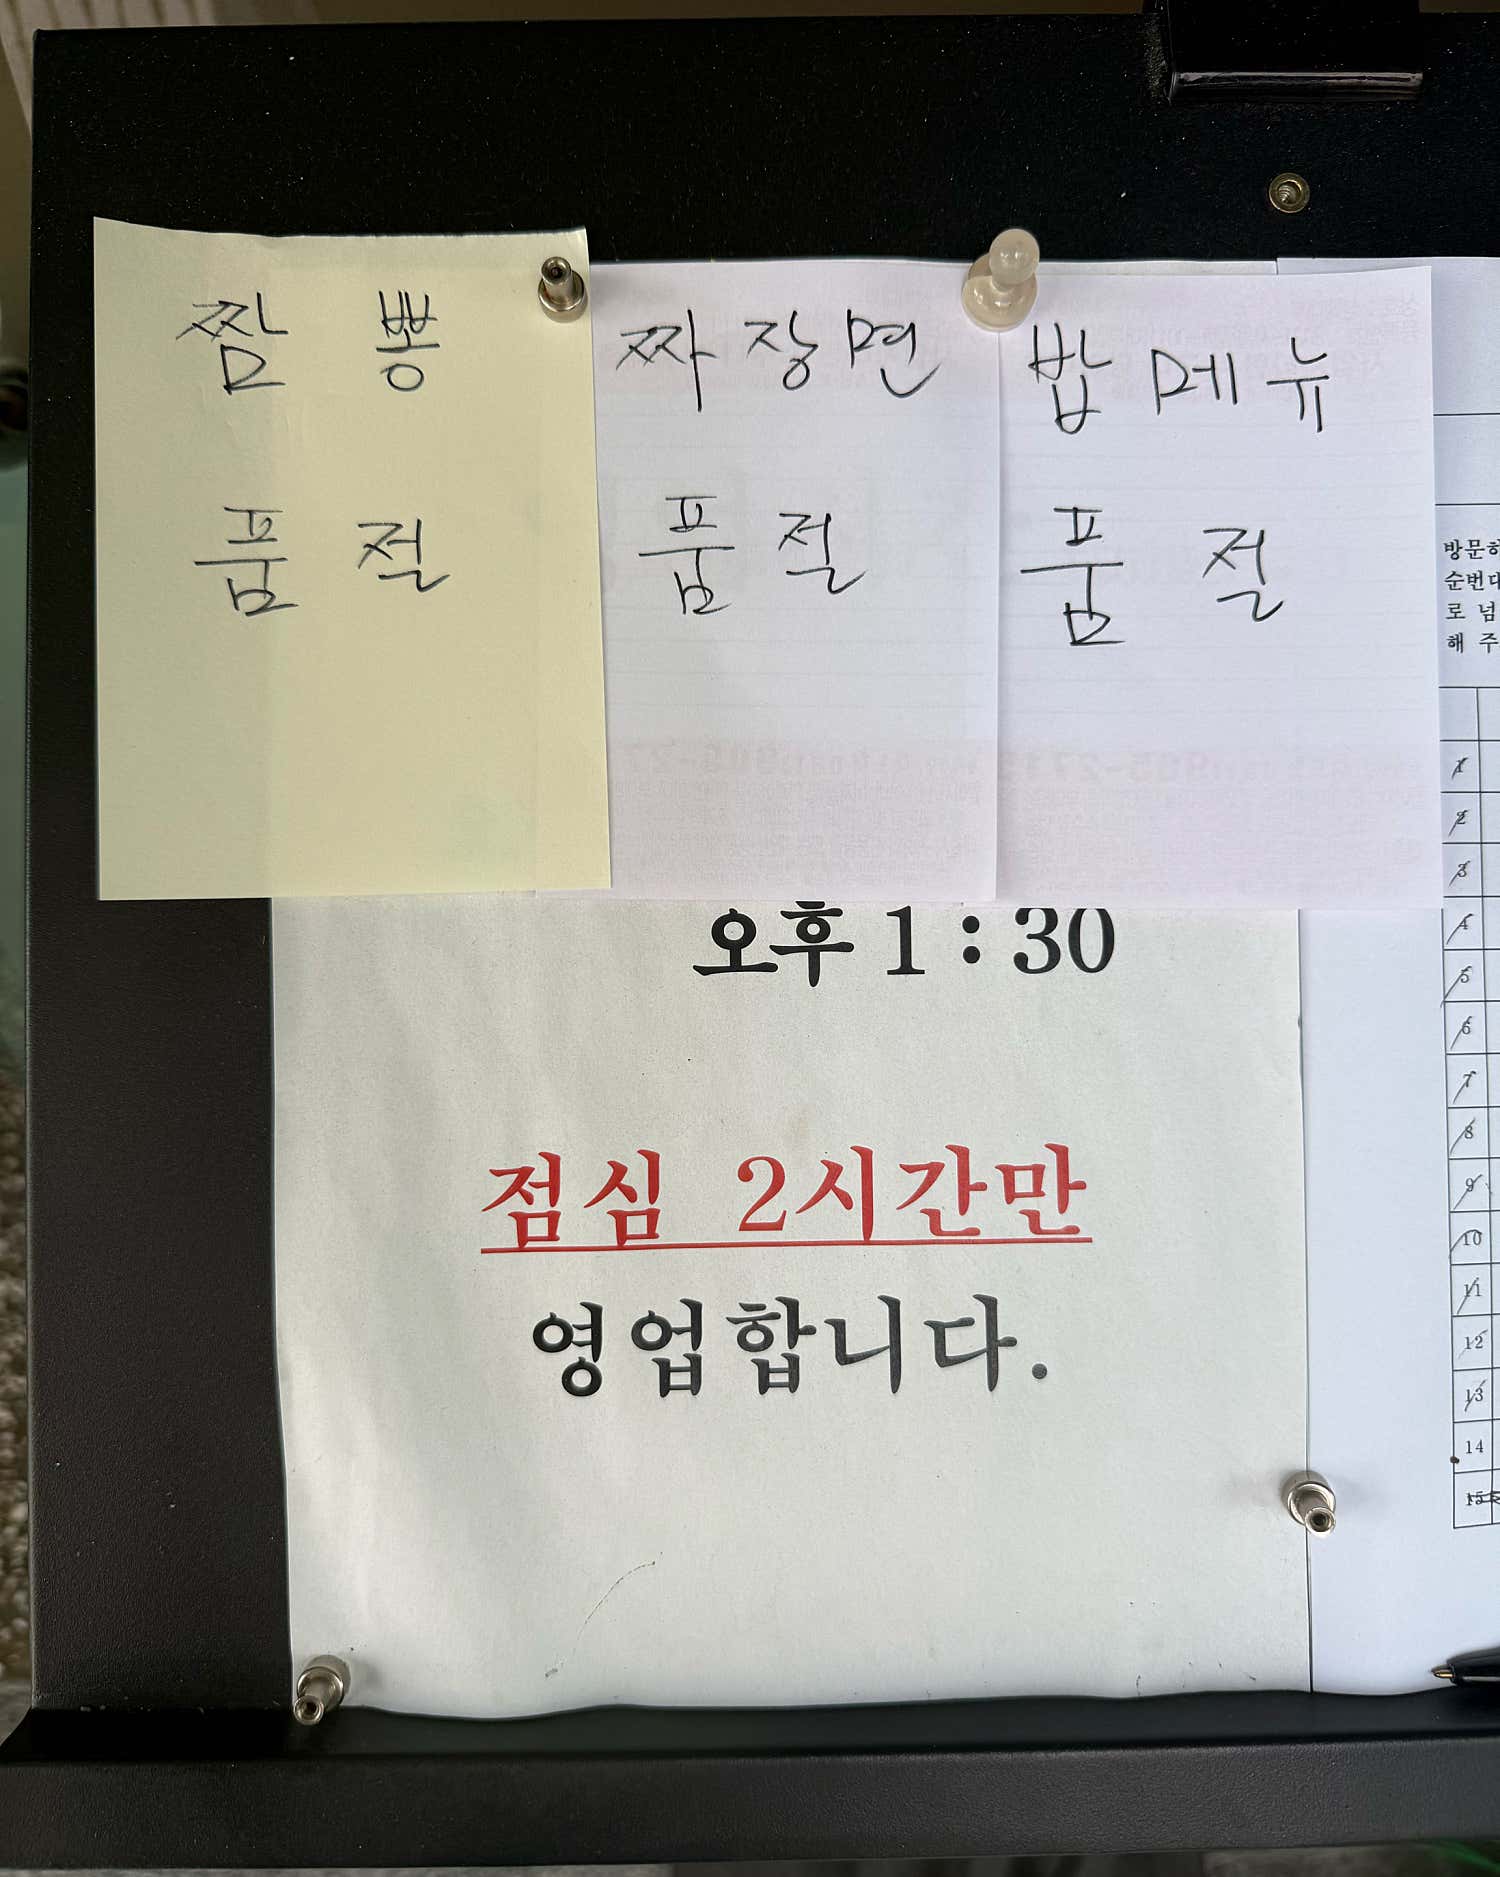 짬뽕
품절
짜장면
품절
밥메뉴
품절
오후 1 : 30
점심 2시간만
영업합니다.
방문하
순번대
로 넘
해 주
1
2
3
4
5
6
7
8
9
10
11
12
13
14
15